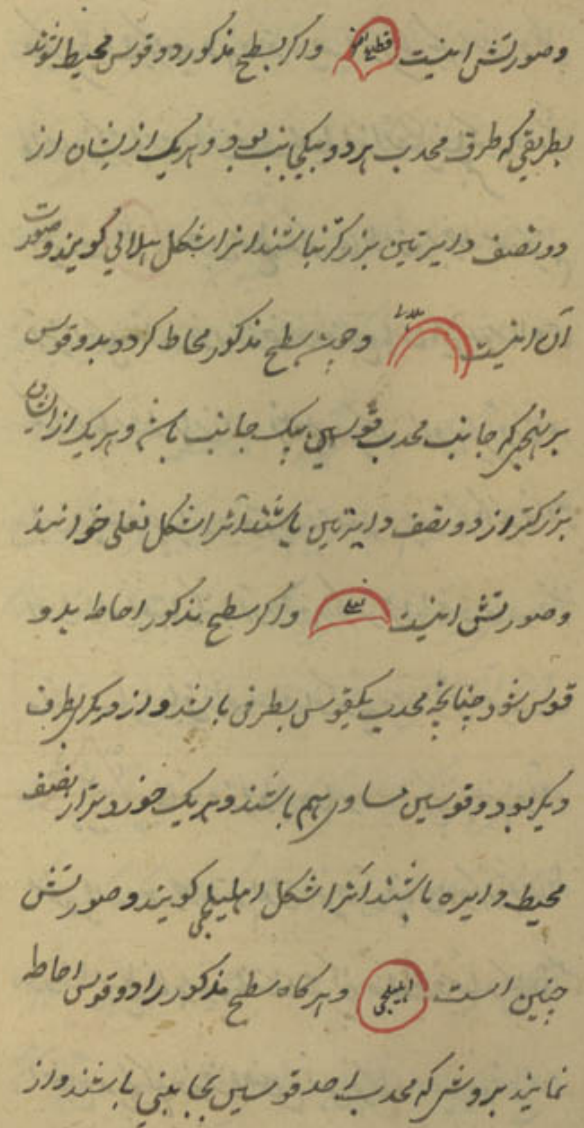 وصورتش اینست واکر سطح مذکور دو قوس محیط شوند
بطریقی که طرف محدب هر دو بیکجانب بود و هریک ازیشان از
دو نصف دایرتین بزرکتر نباشند انرا شکل هلالی کویند وصورت
آن اینست هلالی وچون سطح مذکور محاط کردد بدو قوس
بر نهجی که جانب محدب قوسین بیک جانب باشد و هریک از ایشان
بزرکتر از دو نصف دایرتین باشند آنرا شکل نعلی خوانند
وصورتش اینست نعلی واکر سطح مذکور احاطه بدو
قوس شود چنانچه محدب یکقوس بطرفی باشد و از دیکر بطرف
دیکر بود و قوسین مساوی هم باشند و هریک خوردتر از نصف
محیط دایره باشند آنرا شکل اهلیلجی کویند وصورتش
چنین است اهلیلجی و هرکاه سطح مذکور را دو قوس احاطه
نمایند بروشی که محدب احد قوسین بجانبی باشند و از